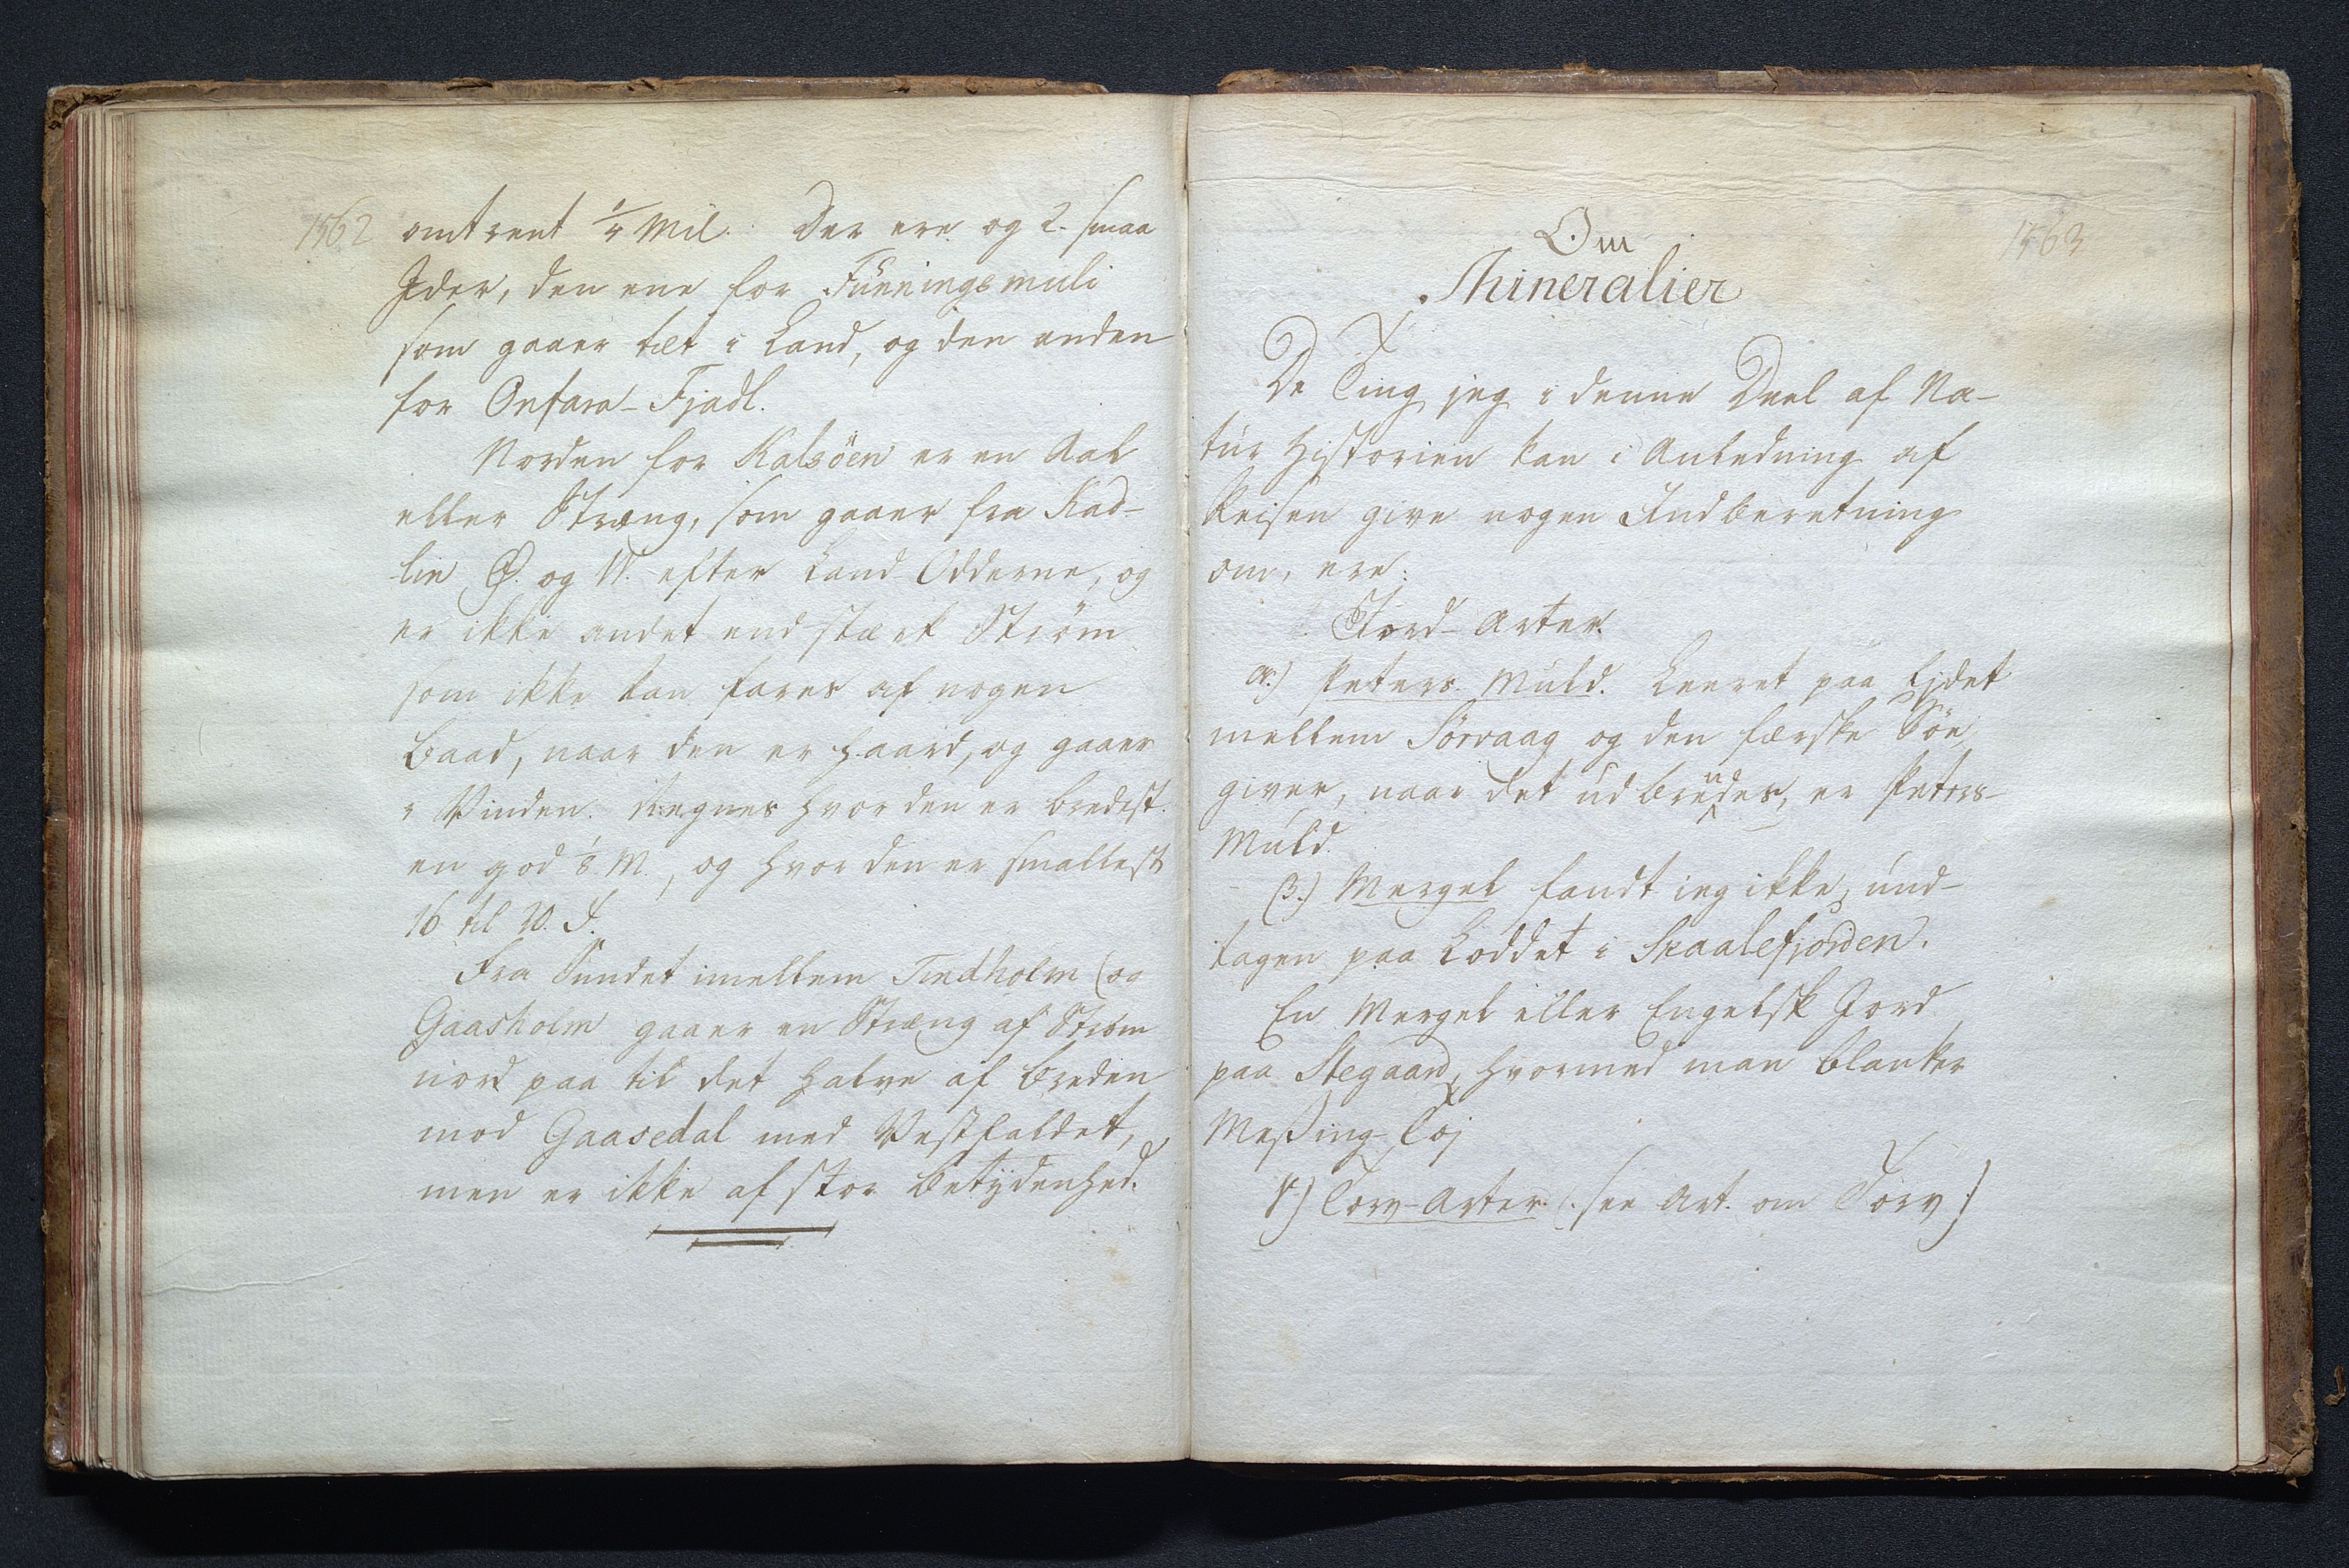 1562
omtrent 1/4 Mil. Der ere og 2. smaa
Ider, den ene for Funningsmuli
som gaaer tæt i Land, og den anden
for Onfara-Fjadl.
Norden for Kalsöen er en Aal
eller Stræng, som gaaer fra Kad-
lin Ø. og N. efter Land-Odderne, og
er ikke andet end stærk Ström
som ikke kan fares af nogen
Baad, naar den er haard, og gaaer
i Vinden. Regnes hvor den er bredest
en god 1/8 M., og hvor den er smallest
16 til 20. F.
Fra Sundet imellem Tindholm (og
Gaasholm gaaer en Stræng af Strøm
nord paa til det halve af Breden
mod Gaasedal med Vestfaldet,
men er ikke af stor Betydenhed.
1563
Om
Mineralier
De Ting jeg i denne Deel af Na-
tur Historien kan i Anledning af
Reisen give nogen Indberetning
om, ere:
Jord-Arter.
α.) Peters Muld. Leeret paa Ejdet
mellem Sörvaag og den færske Söe,
giver, naar det udbrendes, er Peters-
Muld.
β.) Mergel fandt ieg ikke, und-
tagen paa Loddet i Skaalefjorden.
En Mergel eller Engelsk Jord
paa Stegaard, hvormed man blanker
Messing-Tøj
γ) Torv-Arter (: see Art. om Torv :)